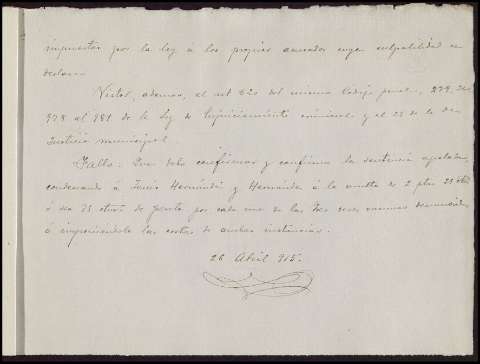 impuestas por la ley á los propios acusados cuya culpabilidad se
declara.
Vistos, ademas, el art 620 del mismo Codigo penal,
978 al 981 de la Ley de Enjuiciamiento criminal y el 23 de la de
Justicia municipal
Fallo: Que debo confirmar y confirmo la sentencia apelada,
condenando á Jesús Hernández y Hernández á la multa de 2 ptas 25 cts
ó sea 75 ctmos de peseta por cada una de las tres reses vacunas denunciadas
é imponiéndole las costas de ambas instancias.
26 Abril 915.